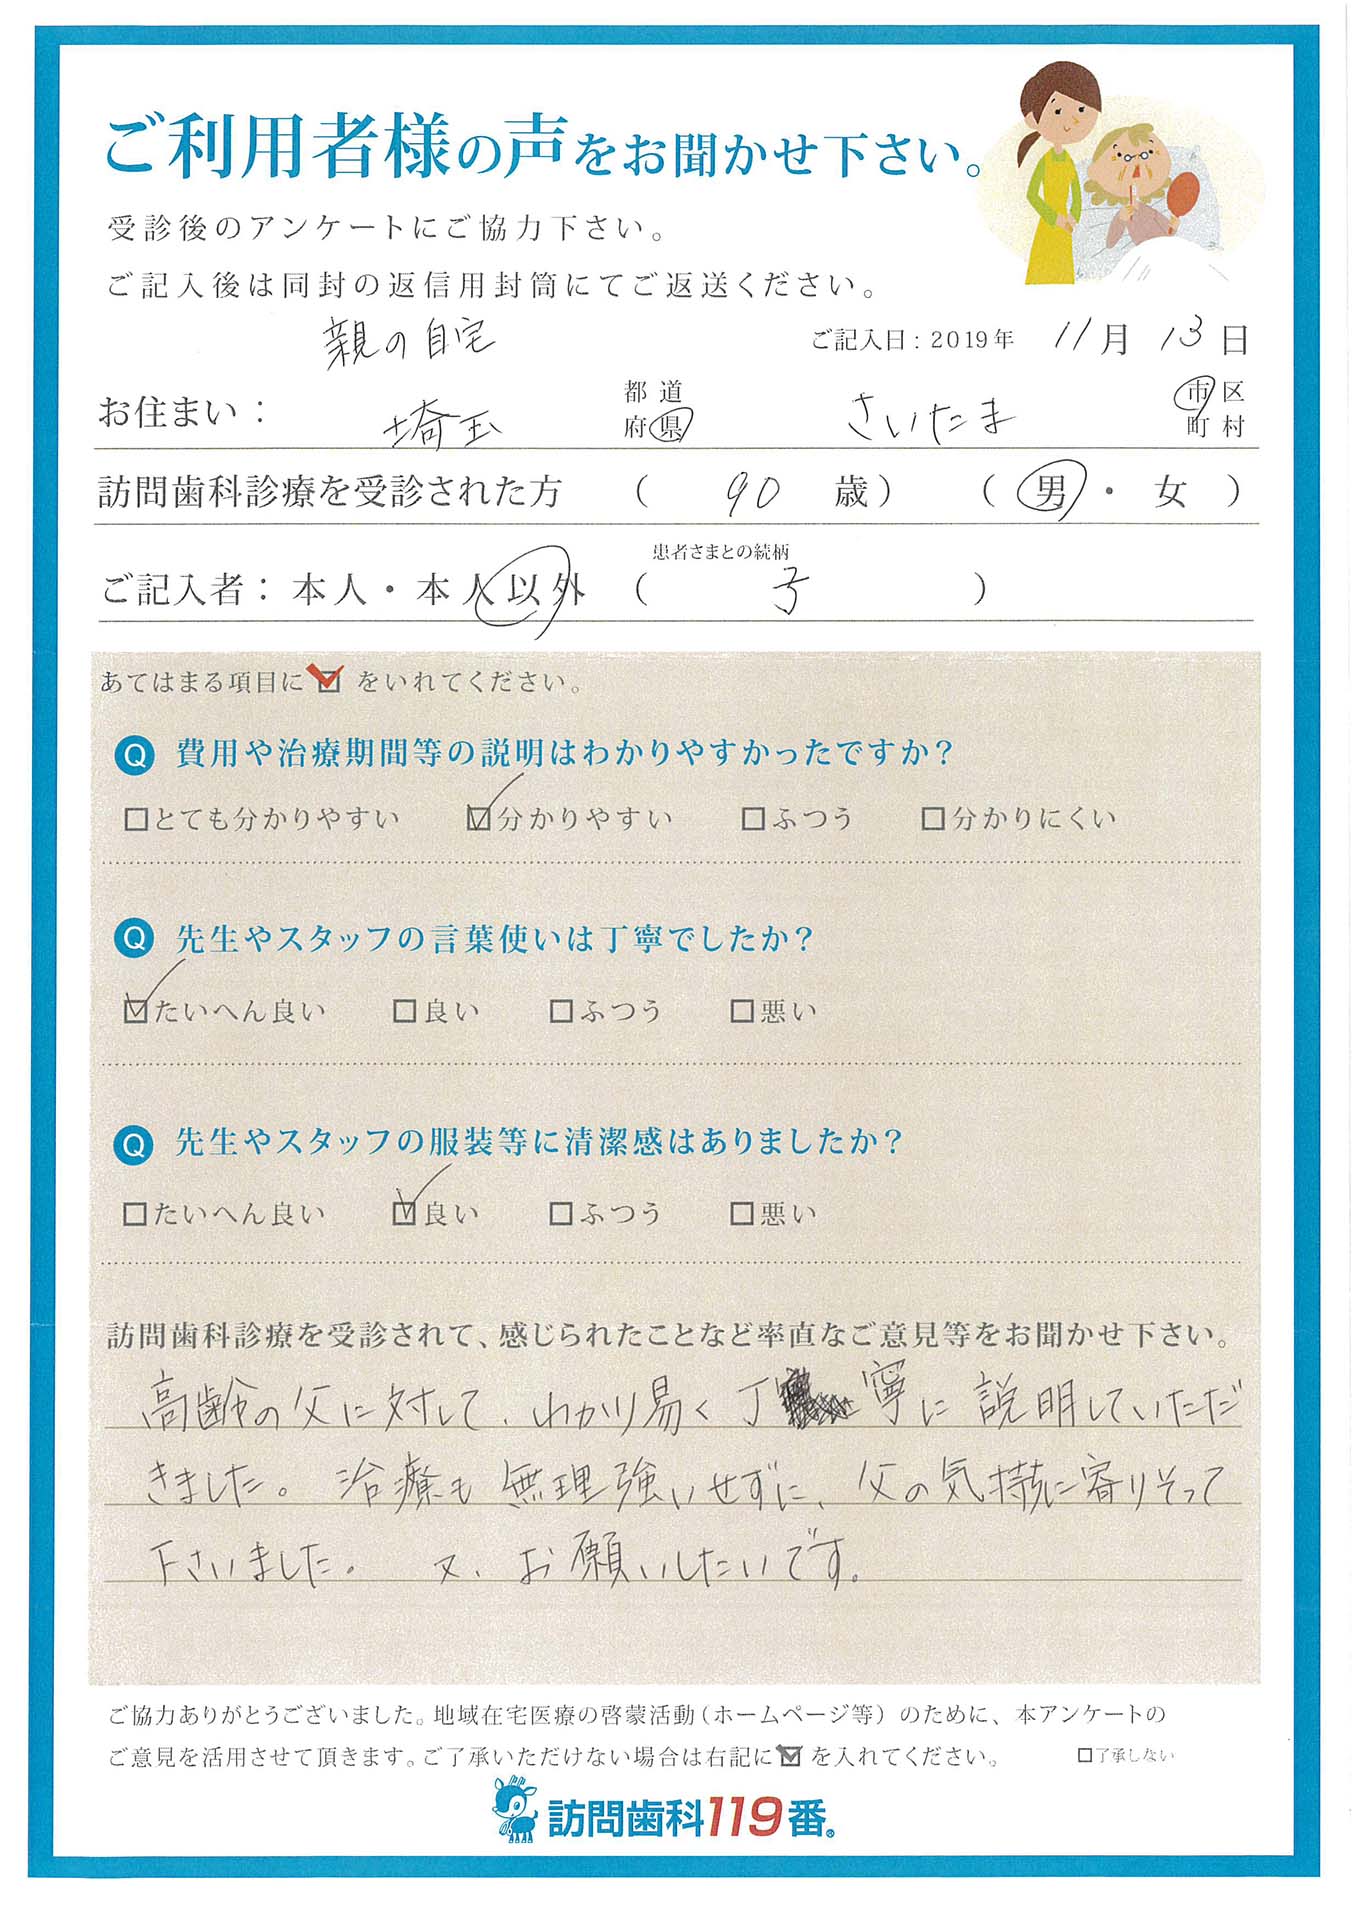 ご利用者様の声をお聞かせ下さい。
受診後のアンケートにご協力下さい。
ご記入後は同封の返信用封筒にてご返送ください。
親の自宅
ご記入日: 2019年 11月 13日
お住まい： 埼玉 都道府県 さいたま 市区町村
訪問歯科診療を受診された方 （ 90 歳） （ 男 ・ 女 ）
患者さまとの続柄
ご記入者：本人・本人以外 （ 子 ）
あてはまる項目に☑をいれてください。
Q 費用や治療期間等の説明はわかりやすかったですか？
□とても分かりやすい ☑分かりやすい □ふつう □分かりにくい
Q 先生やスタッフの言葉使いは丁寧でしたか？
☑たいへん良い □良い □ふつう □悪い
Q 先生やスタッフの服装等に清潔感はありましたか？
□たいへん良い ☑良い □ふつう □悪い
訪問歯科診療を受診されて、感じられたことなど率直なご意見等をお聞かせ下さい。
高齢の父に対して、わかり易く丁寧に説明していただ
きました。治療も無理強いせずに、父の気持に寄りそって
下さいました。 又、お願いしたいです。
ご協力ありがとうございました。地域在宅医療の啓蒙活動（ホームページ等）のために、本アンケートの
ご意見を活用させて頂きます。ご了承いただけない場合は右記に☑を入れてください。 □了承しない
訪問歯科119番